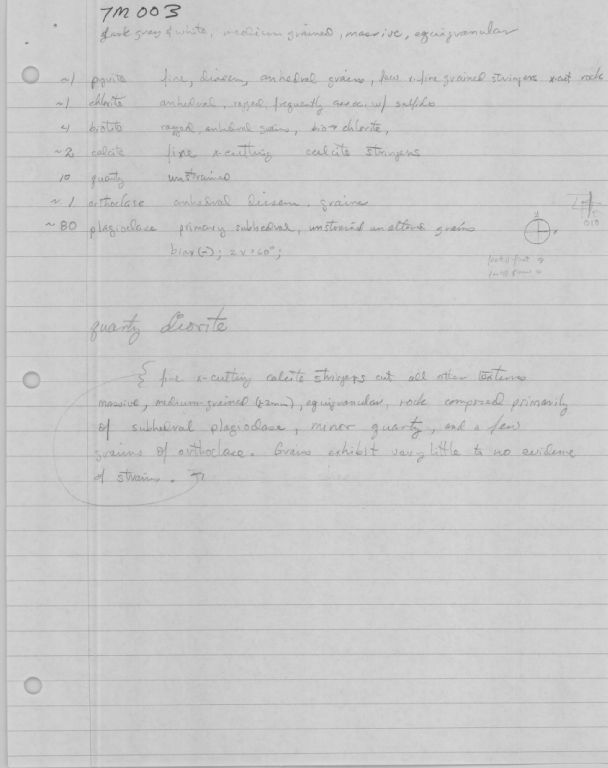 7M 003
dark gray & white, medium grained, massive, equigranular
~1 pyrite fine, dissem, anhedral grains, few v. fine grained stringers x-cut rock
~1 chlorite anhedral, ragged, frequently assoc. w/ sulfides
4 biotite ragged, anhedral grains, bio → chlorite,
~2 calcite fine x-cutting calcite stringers
10 quartz unstrained
~.1 orthoclase anhedral dissem. grains
~80 plagioclase primary subhedral, unstrained unaltered grains
biax(-); 2v >60°;
010
quartz diorite
{ fine x-cutting calcite stringers cut all other textures
massive, medium-grained (<2mm), equigranular, rock composed primarily
of subhedral plagioclase, minor quartz, and a few
grains of orthoclase. Grains exhibit very little to no evidence
of strain.